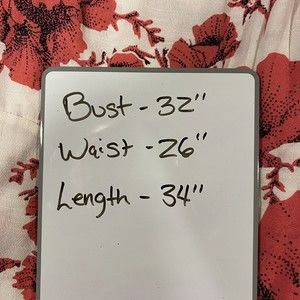 Bust - 32"
Waist - 26"
Length - 34"